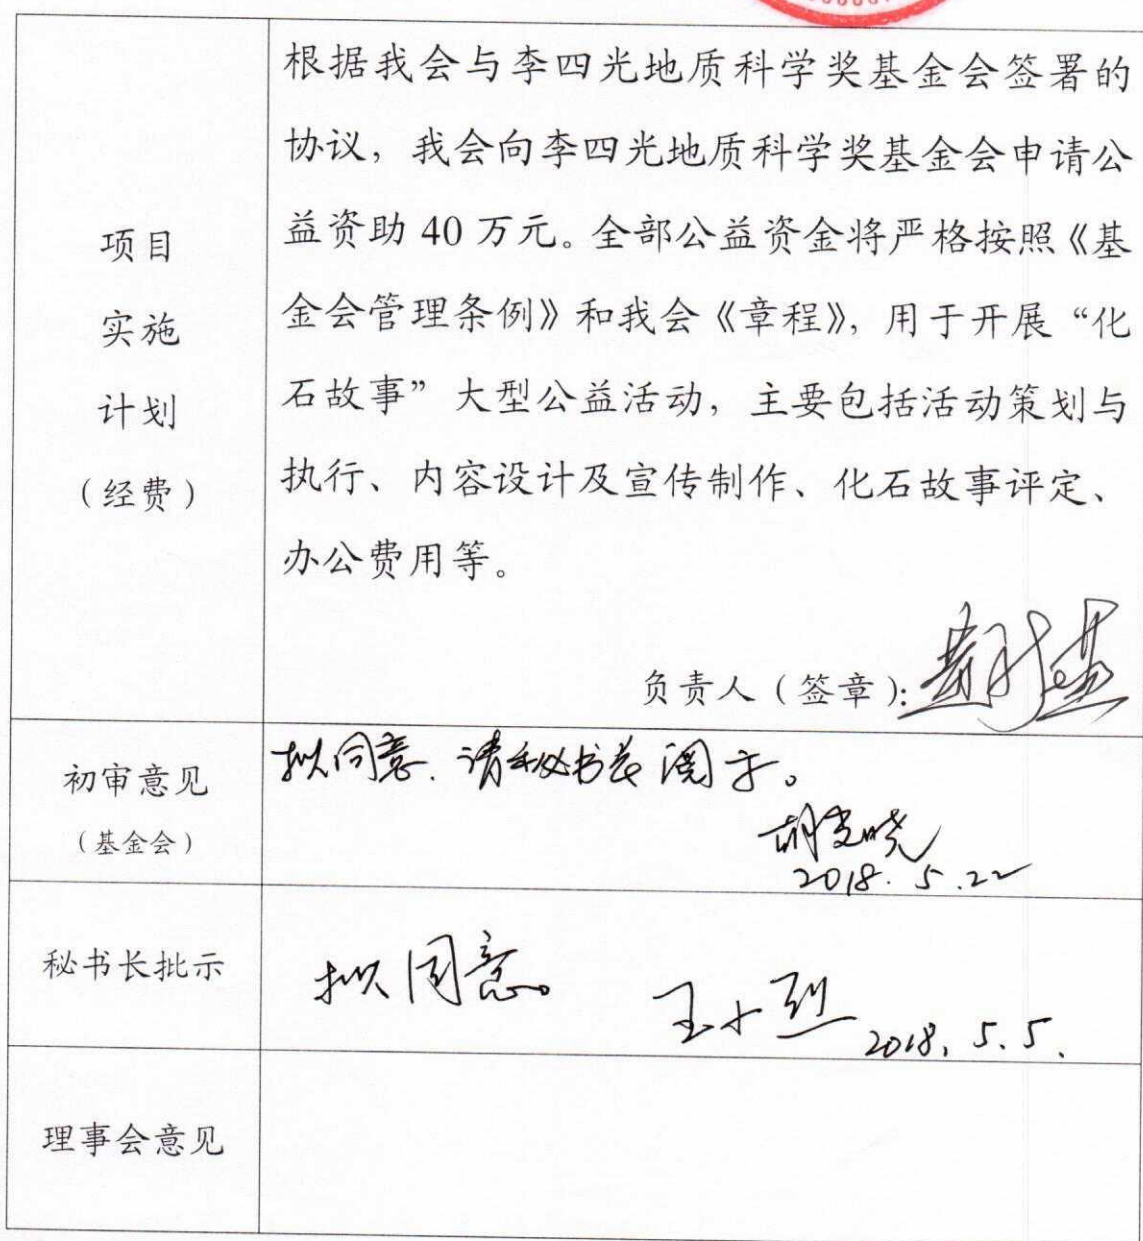 项目
实施
计划
（经费）
根据我会与李四光地质科学奖基金会签署的
协议，我会向李四光地质科学奖基金会申请公
益资助 40 万元。全部公益资金将严格按照《基
金会管理条例》和我会《章程》，用于开展“化
石故事”大型公益活动，主要包括活动策划与
执行、内容设计及宣传制作、化石故事评定、
办公费用等。
负责人（签章）：
初审意见
（基金会）
拟同意. 请秘书长阅示。
2018. 5. 22
秘书长批示
拟同意。
王小烈 2018. 5. 5.
理事会意见